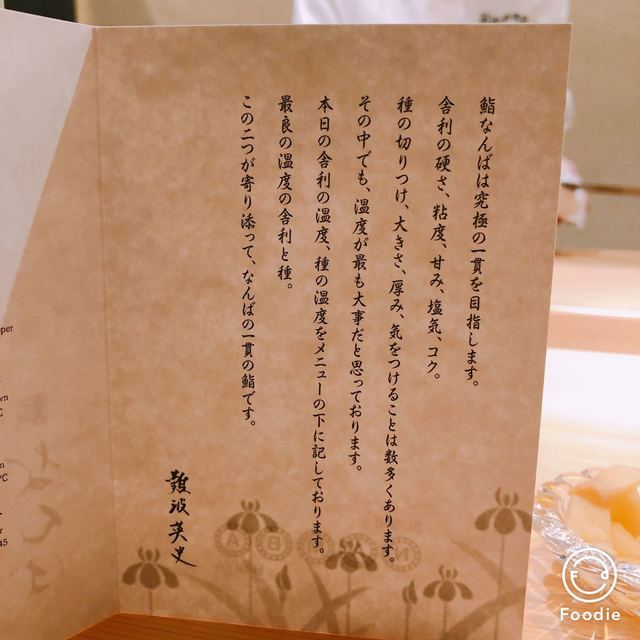 鮨なんばは究極の一貫を目指します。
舎利の硬さ、粘度、甘み、塩気、コク。
種の切りつけ、大きさ、厚み、気をつけることは数多くあります。
その中でも、温度が最も大事だと思っております。
本日の舎利の温度、種の温度をメニューの下に記しております。
最良の温度の舎利と種。
この二つが寄り添って、なんばの一貫の鮨です。
難波英史
Foodie